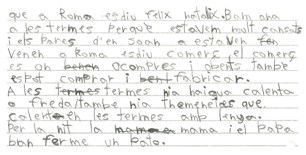 que a Roma esdiu felix natalix. Bam ana
a les termes Perquè estavem mult cansats
i els Pares d'en Joan a estaven fen
venen a Roma esdiu comers, el comers
es on acompres i oberts també
espot comprar i fabricar.
A les termes nia haigua calenta
o freda/tambe nia themeneies que
calenten les termes amb lenya.
Per la nit la mama i el PaPa
ban ferme un Pato.